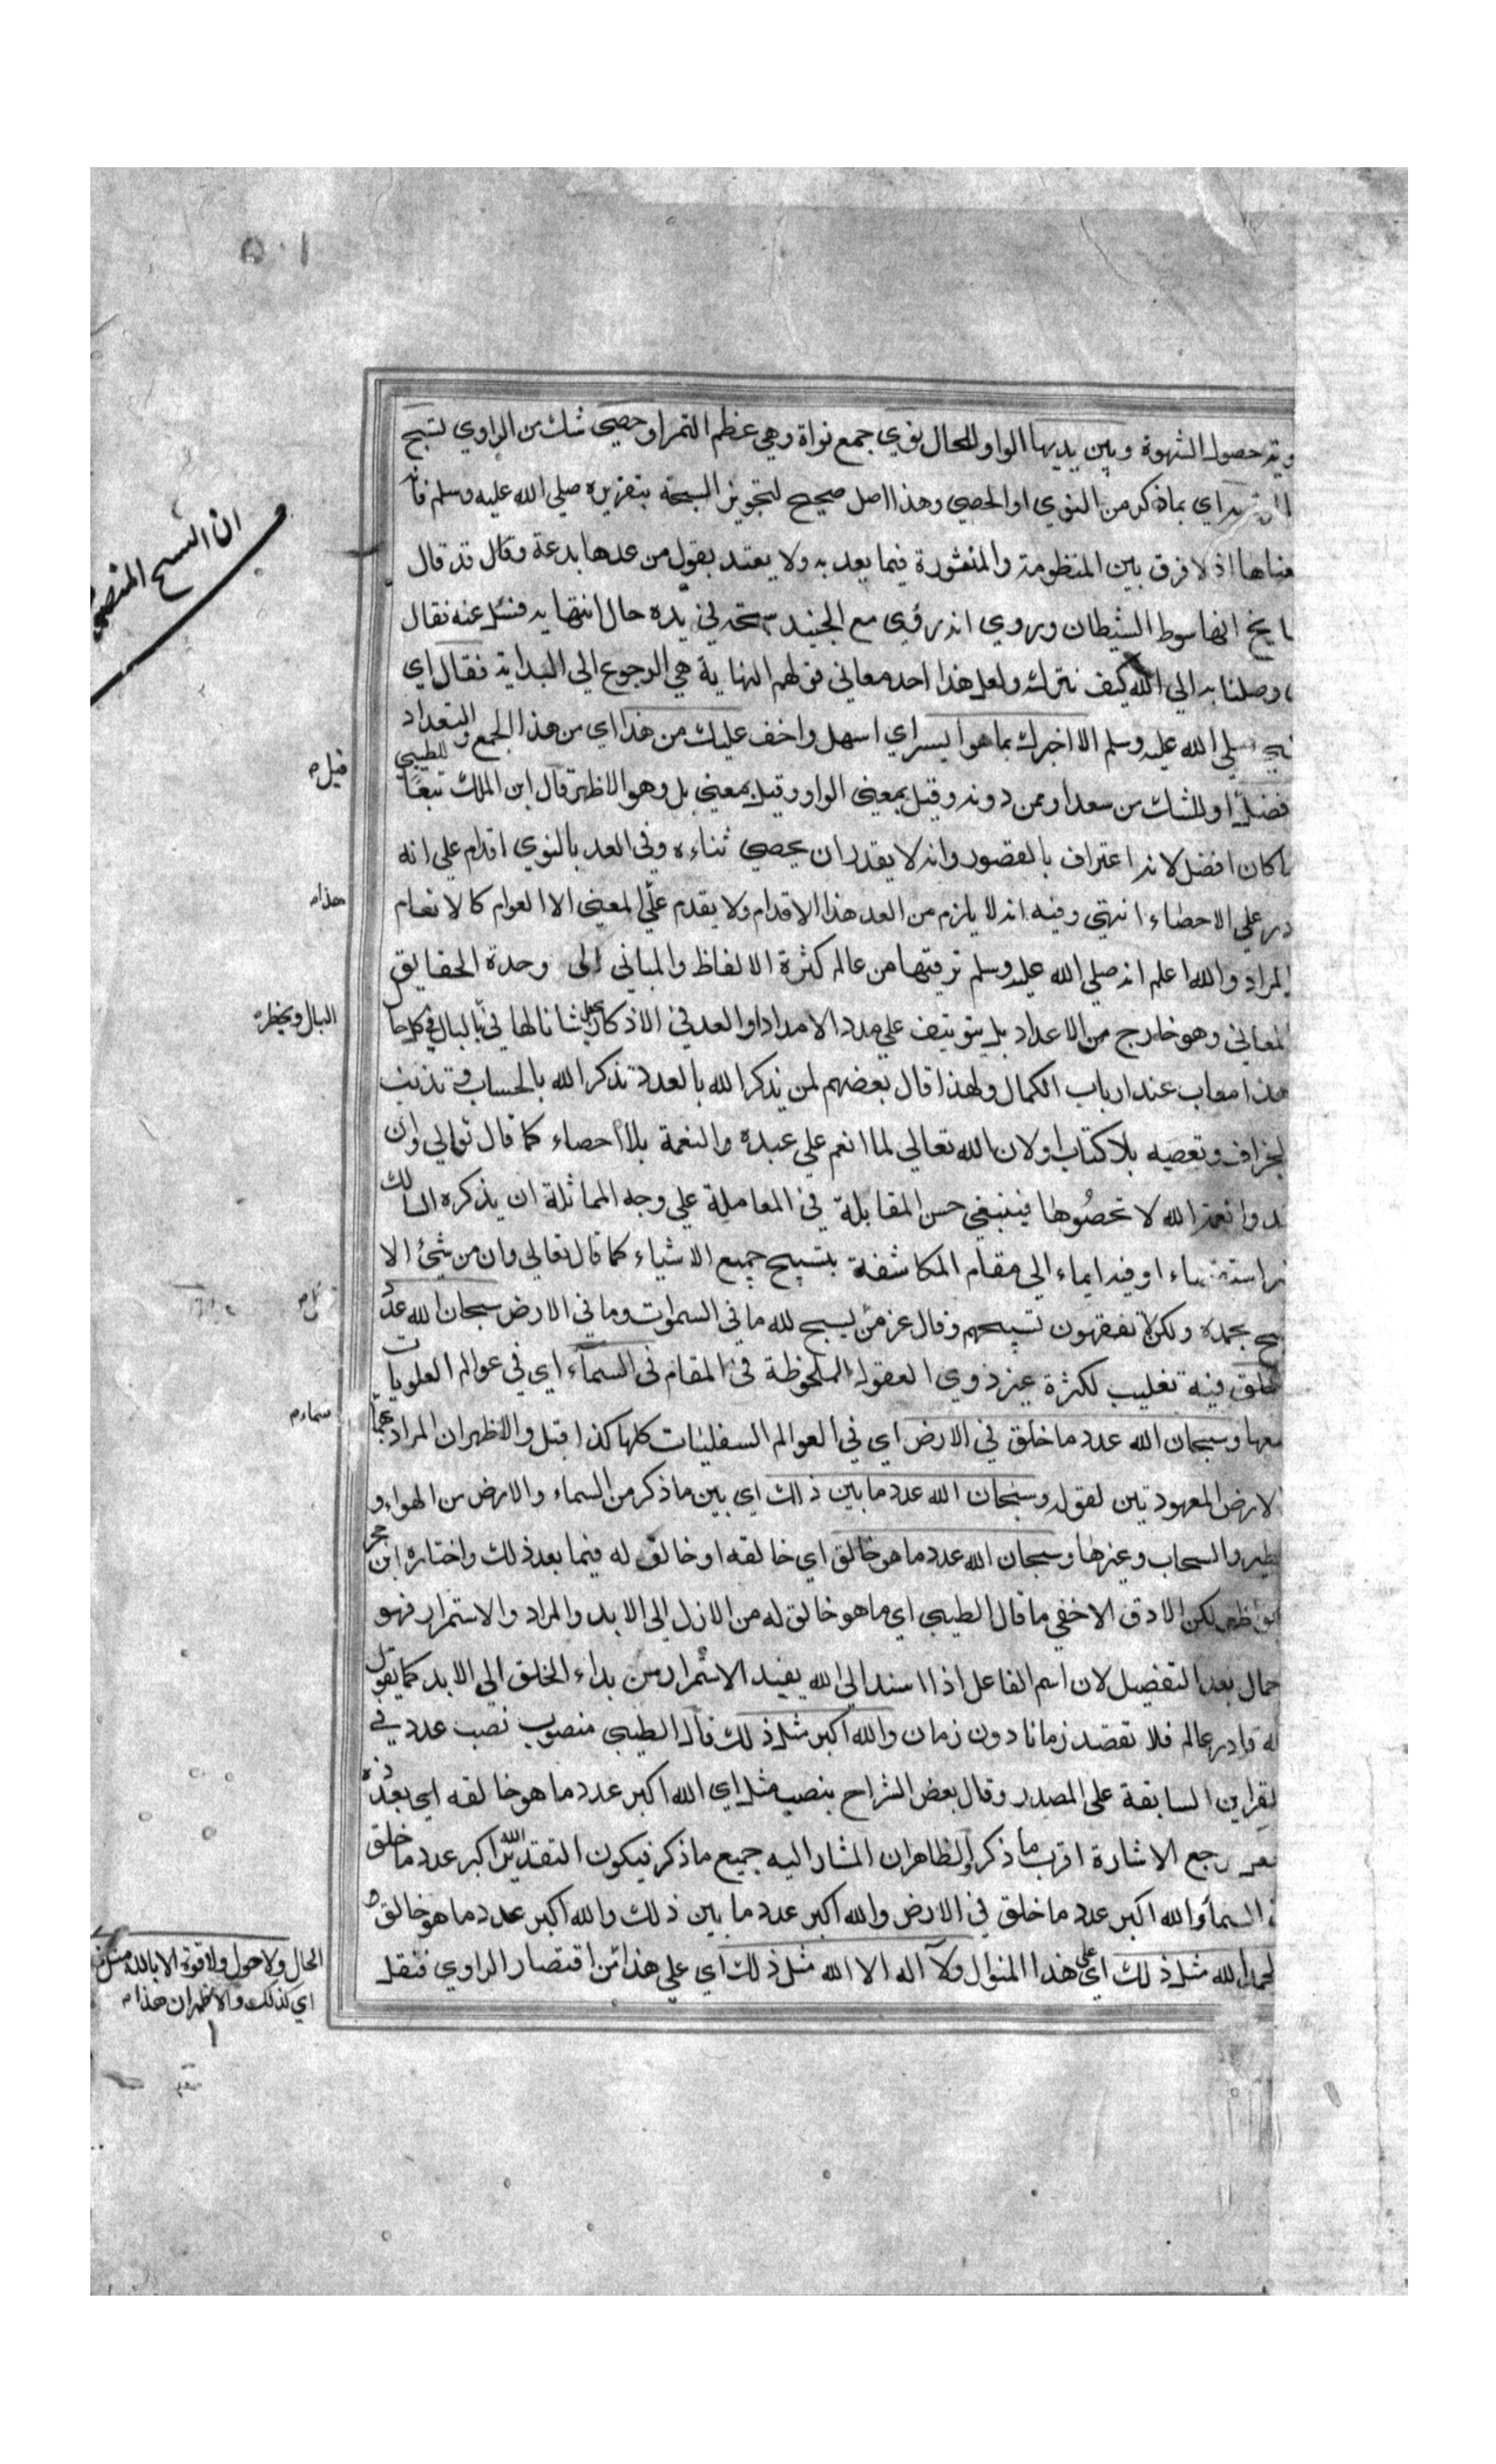 ١٥٠
حصول الشهوة وبين يديها الواو للحال نوي جمع نواة وهي عظم التمر او حصي شك من الراوي تسبح
اي بما ذكر من النوي او الحصي وهذا اصل صحيح لتجويز السبحة بتقريره صلي الله عليه وسلم فانه
اذ لا فرق بين المنظومة والمنثورة فيما يعد به ولا يعتد بقول من عدها بدعة وقال قد قال
انها سوط الشيطان وروي انه رؤي مع الجنيد سبحة في يده حال انتهايه فسئل عنه فقال
وصلنا به الي الله كيف نتركه ولعل هذا احد معاني قولهم النهاية هي الرجوع الي البداية فقال اي
صلي الله عليه وسلم الا اخبرك بما هو ايسر اي اسهل واخف عليك من هذا اي من هذا الجمع والتعداد
او للشك من سعد او ممن دونه وقيل بمعني الواو وقيل بمعني بل وهو الاظهر قال ابن الملك تبعا للطيبي
كان افضل لانه اعتراف بالقصور وانه لا يقدر ان يحصي ثناءه وفي العد بالنوي اقدام علي انه
علي الاحصاء انتهي وفيه انه لا يلزم من العد هذا الاقدام ولا يقدم علي المعني الا العوام كالانعام
المراد والله اعلم انه صلي الله عليه وسلم ترقيتها من عالم كثرة الالفاظ والمباني الي وحدة الحقايق
المعاني وهو خارج من الاعداد بل يتوقف علي مدد الامداد او العد في الاذكار يجعل شانا لها في البال في كل حا
هذا معاب عند ارباب الكمال ولهذا قال بعضهم لمن يذكر الله بالعدد تذكر الله بالحساب وتذنب
بالجزاف وتعصيه بلا كتاب او لان الله تعالي لما انعم علي عبده والنعمة بلا احصاء كما قال تعالي وان
تعدوا نعمة الله لا تحصوها فينبغي حسن المقابلة في المعاملة علي وجه المماثلة ان يذكره السالك
او فيه ايماء الي مقام المكاشفة بتسبيح جميع الاشياء كما قال تعالي وان من شئ الا
يسبح بحمده ولكن لا تفقهون تسبيحهم وقال عز من يسبح لله ما في السموات وما في الارض سبحان الله عدد
خلق فيه تغليب لكثرة غير ذوي العقول الملحوظة في المقام في السماء اي في عوالم العلويات
وسبحان الله عدد ما خلق في الارض اي في العوالم السفليات كلها كذا قيل والاظهر ان المراد
الارض المعهودتين لقوله وسبحان الله عدد ما بين ذلك اي بين ما ذكر من السماء والارض من الهواء و
الطير والسحاب وغيرها وسبحان الله عدد ما هو خالق اي خالقه او خالق له فيما بعد ذلك واختاره ابن حجر
لكن الادق الاخفي ما قال الطيبي اي ما هو خالق له من الازل الي الابد والمراد والاستمرار فهو
بعد التفصيل لان اسم الفاعل اذا اسند الي الله يفيد الاستمرار من بداء الخلق الي الابد كما يقول
قادر عالم فلا تقصد زمانا دون زمان والله اكبر مثل ذلك قال الطيبي منصوب نصب عدد في
القراين السابقة علي المصدر وقال بعض الشراح بنصب مثل اي الله اكبر عدد ما هو خالقه اي بعدده
رجع الاشارة اقرب ما ذكر والظاهر ان المشار اليه جميع ما ذكر فيكون التقدير الله اكبر عدد ما خلق
السماء والله اكبر عدد ما خلق في الارض والله اكبر عدد ما بين ذلك والله اكبر عدد ما هو خالق
الحمد لله مثل ذلك اي علي هذا المنوال ولا اله الا الله مثل ذلك اي علي هذا من اقتصار الراوي فنقل
ان الشيخ
قبل
هذا
البال ويخطر
سماء
الحال ولا حول ولا قوة الا بالله مثل
اي كذلك والاظهر ان هذا